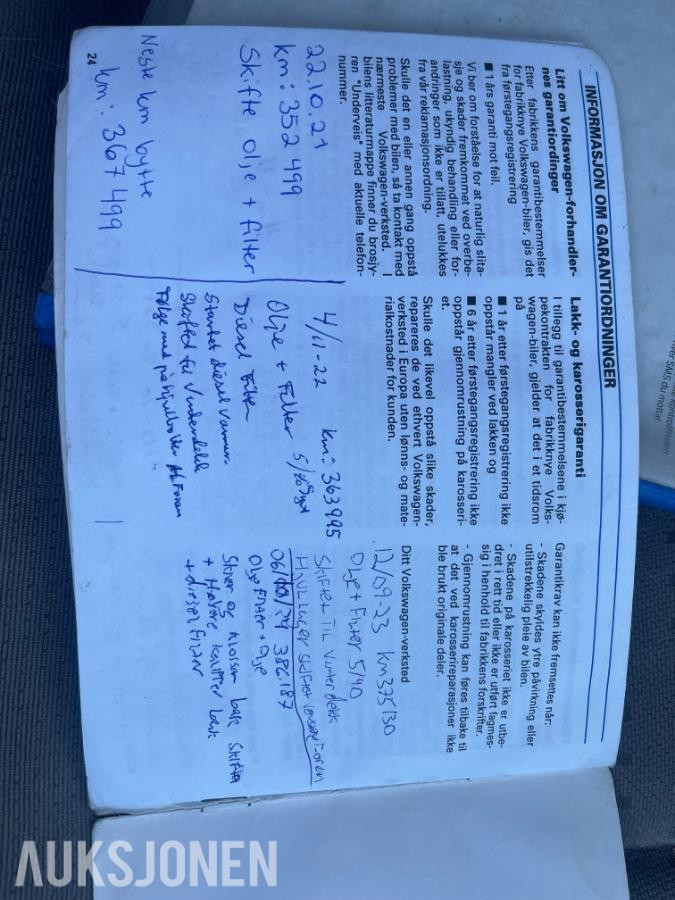 INFORMASJON OM GARANTIORDNINGER
Litt om Volkswagen-forhandler-
nes garantiordninger
Etter fabrikkens garantibestemmelser
for fabrikknye Volkswagen-biler, gis det
fra førstegangsregistrering
■ 1 års garanti mot feil.
Vi ber om forståelse for at naturlig slita-
sje og skader fremkommet ved overbe-
lastning, ukyndig behandling eller for-
andringer som ikke er tillatt, utelukkes
fra vår reklamasjonsordning.
Skulle det en eller annen gang oppstå
problemer med bilen, så ta kontakt med
nærmeste Volkswagen-verksted. I
bilens litteraturmappe finner du brosjy-
ren "Underveis" med aktuelle telefon-
nummer.
22.10.21
km: 352 499
Skifte olje + filter
Neste km bytte
km: 367 499
24
Lakk- og karosserigaranti
I tillegg til garantibestemmelsene i kjø-
pekontrakten for fabrikknye Volks-
wagen-biler, gjelder at det i et tidsrom
på
■ 1 år etter førstegangsregistrering ikke
oppstår mangler ved lakken og
■ 6 år etter førstegangsregistrering ikke
oppstår gjennomrustning på karosseri-
et.
Skulle det likevel oppstå slike skader,
repareres de ved ethvert Volkswagen-
verksted i Europa uten lønns- og mate-
rialkostnader for kunden.
4/11-22 km: 363995
Olje + Filter
Diesel Filter
Startet diesel varmer
Skiftet til Vinterdekk
Garantikrav kan ikke fremsettes når:
- Skadene skyldes ytre påvirkning eller
utilstrekkelig pleie av bilen.
- Skadene på karosseriet ikke er utbe-
dret i rett tid eller ikke er utført fagmes-
sig i henhold til fabrikkens forskrifter.
- Gjennomrustning kan føres tilbake til
at det ved karosserireparasjoner ikke
ble brukt originale deler.
Ditt Volkswagen-verksted
12/09-23 km 375130
Olje + Filter 5/40
Skiftet til vinterdekk
Hjullager skiftet venstre foran
06/ /24 386187
Olje Filter + olje
Skiver og klosser bak skiftet
+ Høyre kaliper bak
+ diesel filter
ver SMS du mottar
AUKSJONEN